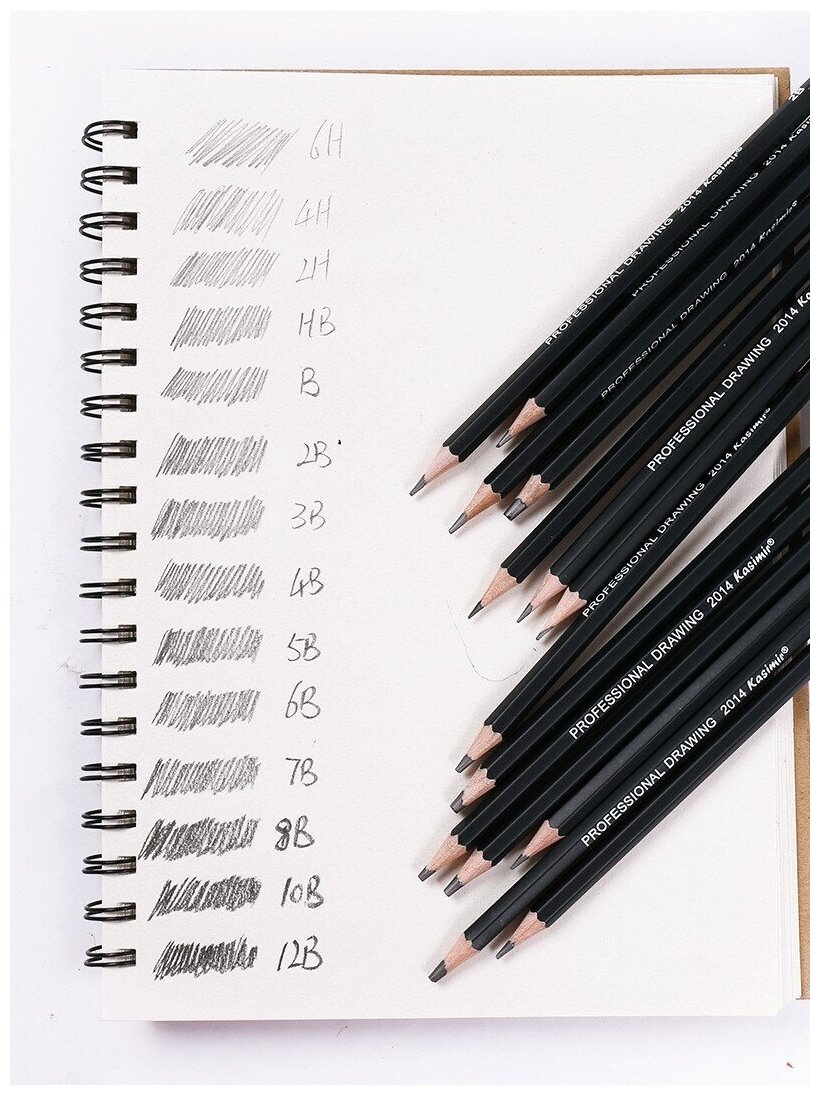 6H
4H
2H
HB
B
2B
3B
4B
5B
6B
7B
8B
10B
12B
2B
PROFESSIONAL DRAWING 2014 Kasimir®
PROFESSIONAL DRAWING 2014
PROFESSIONAL DRAWING 2014 Kasimir®
PROFESSIONAL DRAWING 2014 Ka
PROFESSIONAL DRAWING 2014 Kasimir®
PROFESSIONAL DRAWING 2014 Kasimir®
PROFESSIONAL DRAWING 2014 Kasimir®